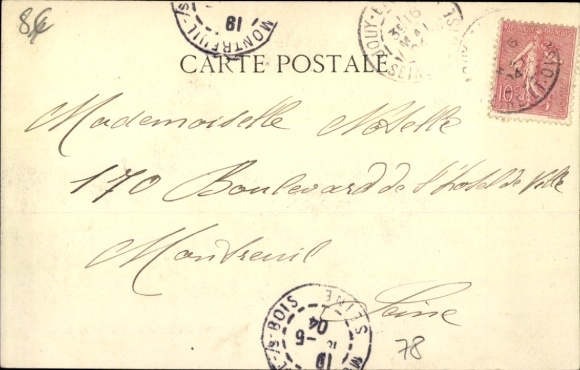 8€
MONTREUIL-S
19
JOUY-E
MAI
CARTE POSTALE
10
Mademoiselle Noselle
170 Boulevard de l'Hotel de Ville
Montreuil
Seine
S-BOIS
SEINE
19
5
04
78